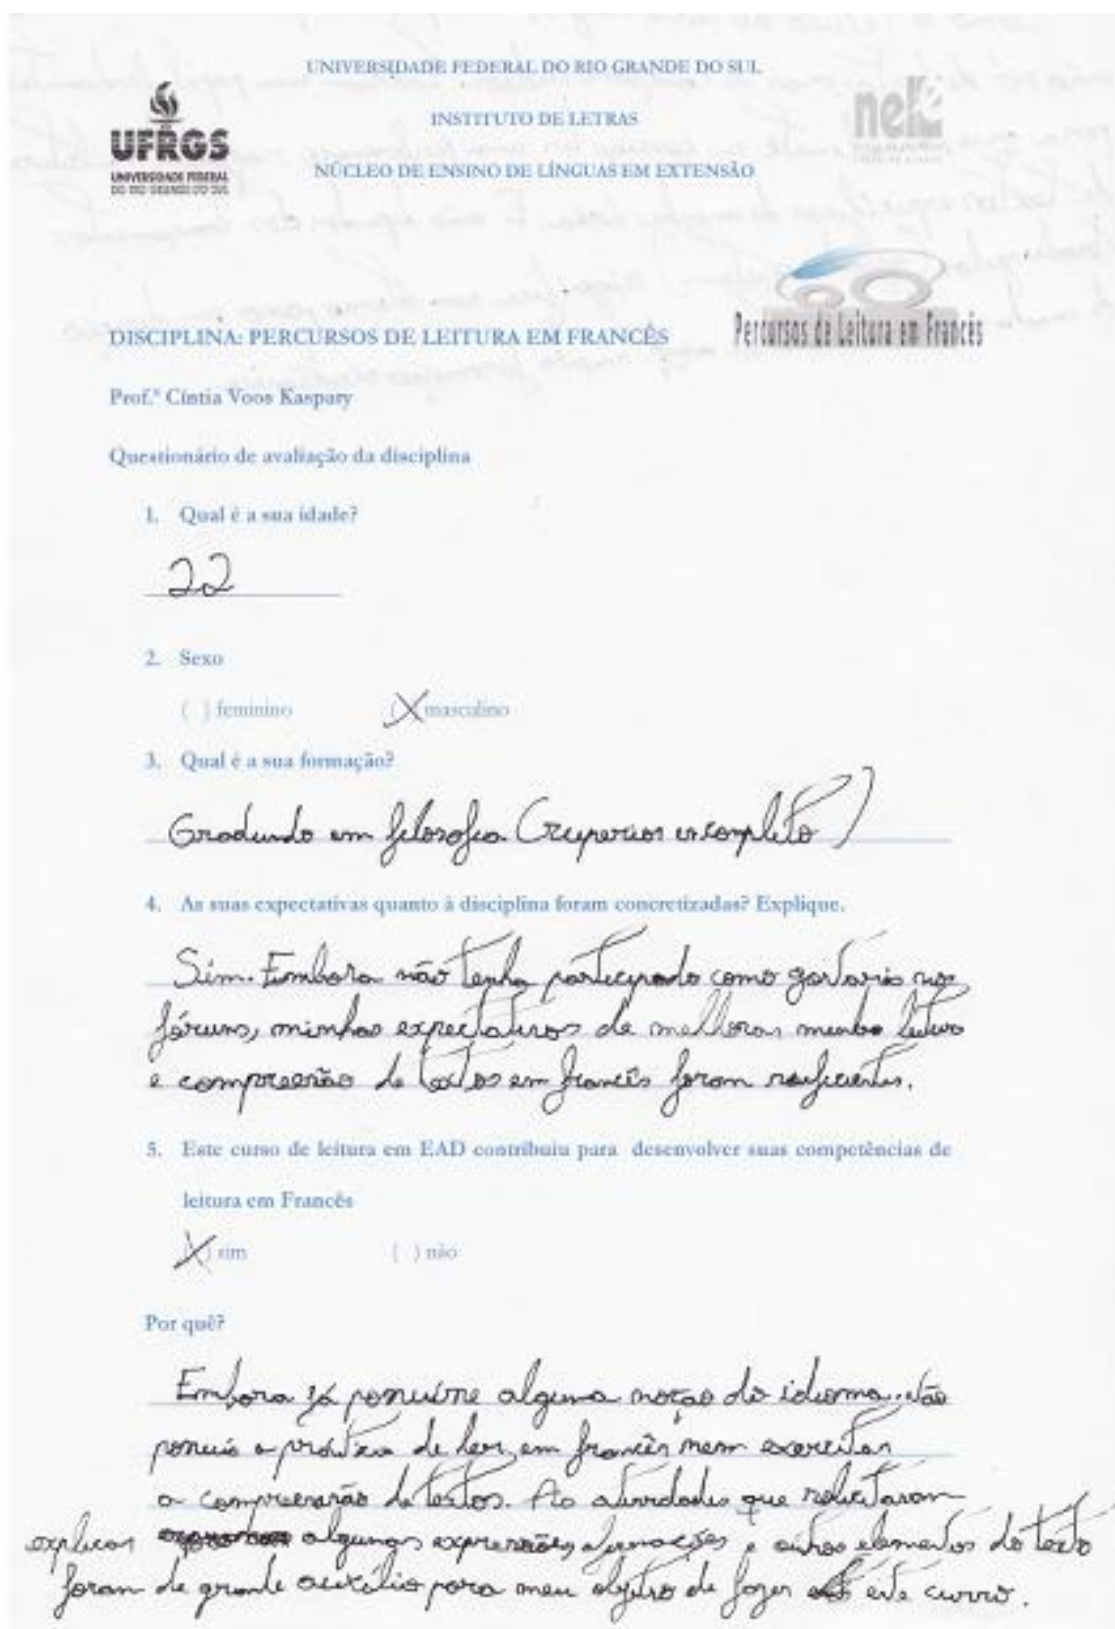 UNIVERSIDADE FEDERAL DO RIO GRANDE DO SUL
INSTITUTO DE LETRAS
NÚCLEO DE ENSINO DE LÍNGUAS EM EXTENSÃO
UFRGS
UNIVERSIDADE FEDERAL
DO RIO GRANDE DO SUL
nele
Percursos de Leitura em Francês
DISCIPLINA: PERCURSOS DE LEITURA EM FRANCÊS
Prof.ª Cíntia Voos Kaspary
Questionário de avaliação da disciplina
1. Qual é a sua idade?
22
2. Sexo
( ) feminino (X) masculino
3. Qual é a sua formação?
Graduando em filosofia (superior incompleto)
4. As suas expectativas quanto à disciplina foram concretizadas? Explique.
Sim. Embora não tenha participado como gostaria nos
fóruns, minhas expectativas de melhorar minha leitura
e compreensão de textos em francês foram suficientes.
5. Este curso de leitura em EAD contribuiu para desenvolver suas competências de
leitura em Francês
(X) sim ( ) não
Por quê?
Embora já possuísse alguma noção do idioma. Não
possuía a prática de ler em francês nem exercitar
a compreensão de textos. As atividades que solicitaram
explicar algumas expressões, afirmações e outros elementos do texto
foram de grande auxílio para meu objetivo de fazer este curso.